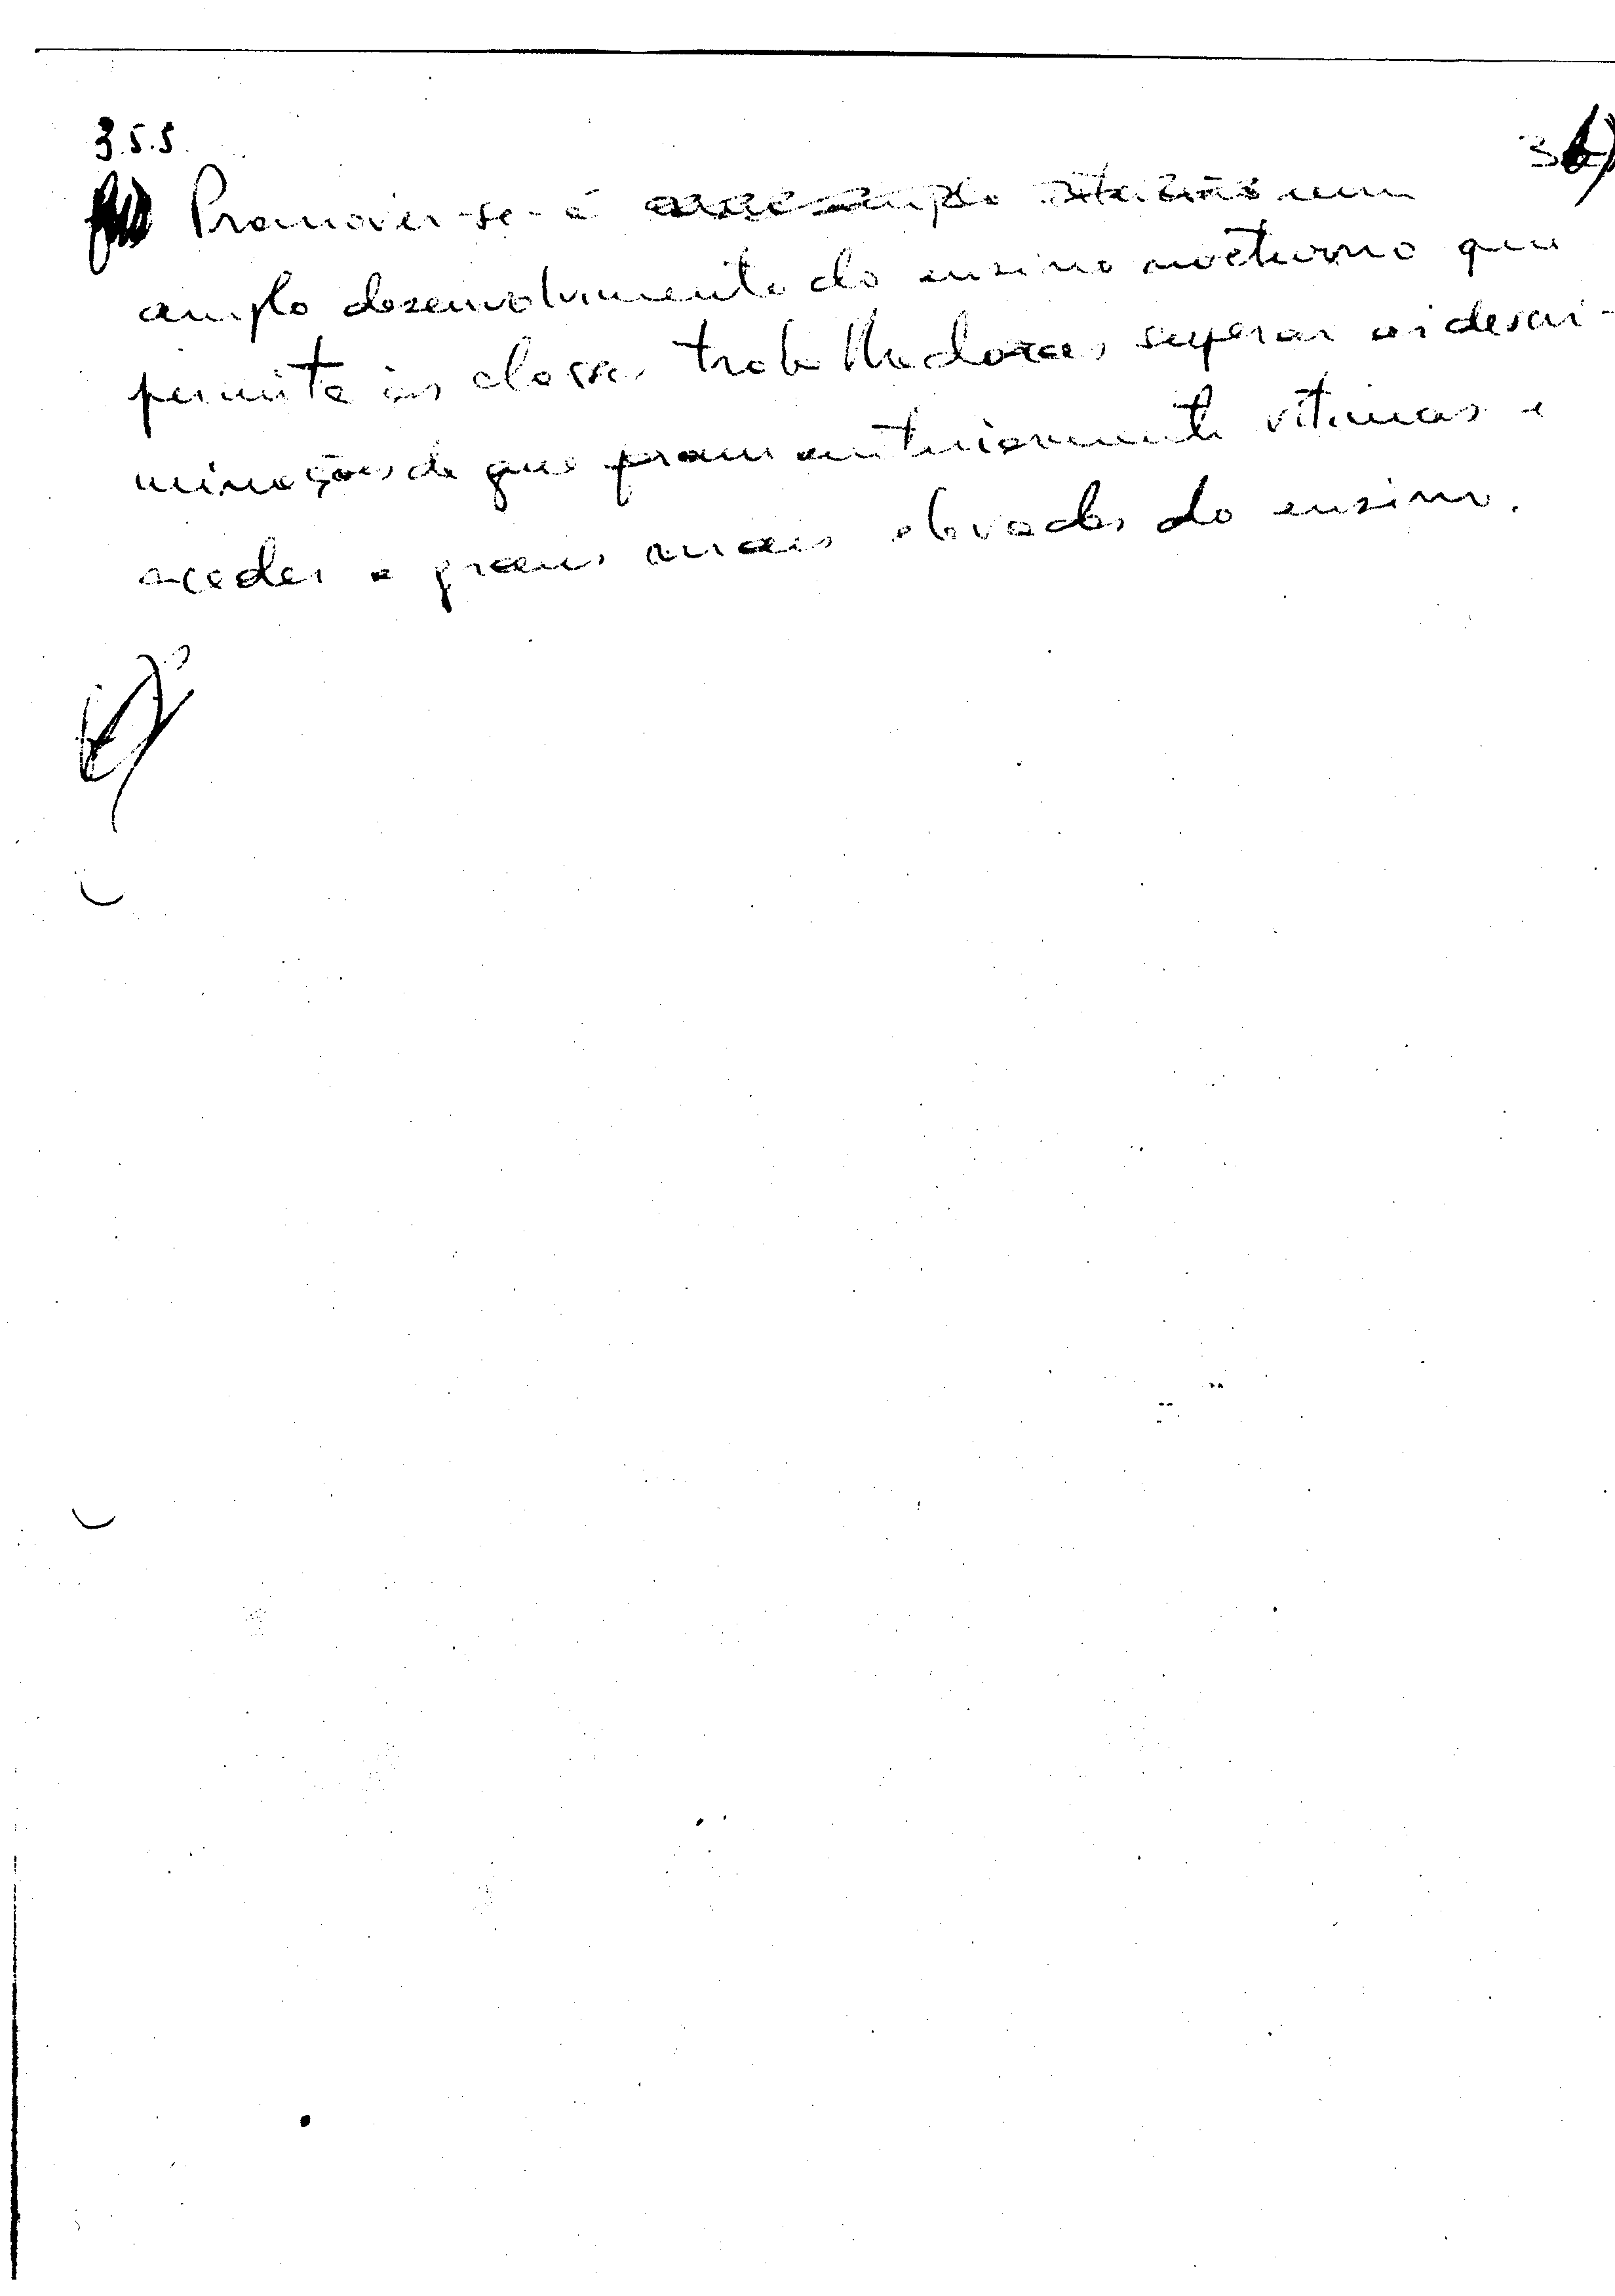 3.5.5.
Promover-se-á um
amplo desenvolvimento do ensino nocturno que
permita às classes trabalhadoras superar as descri-
minações de que foram anteriormente vítimas e
aceder a graus mais elevados do ensino.